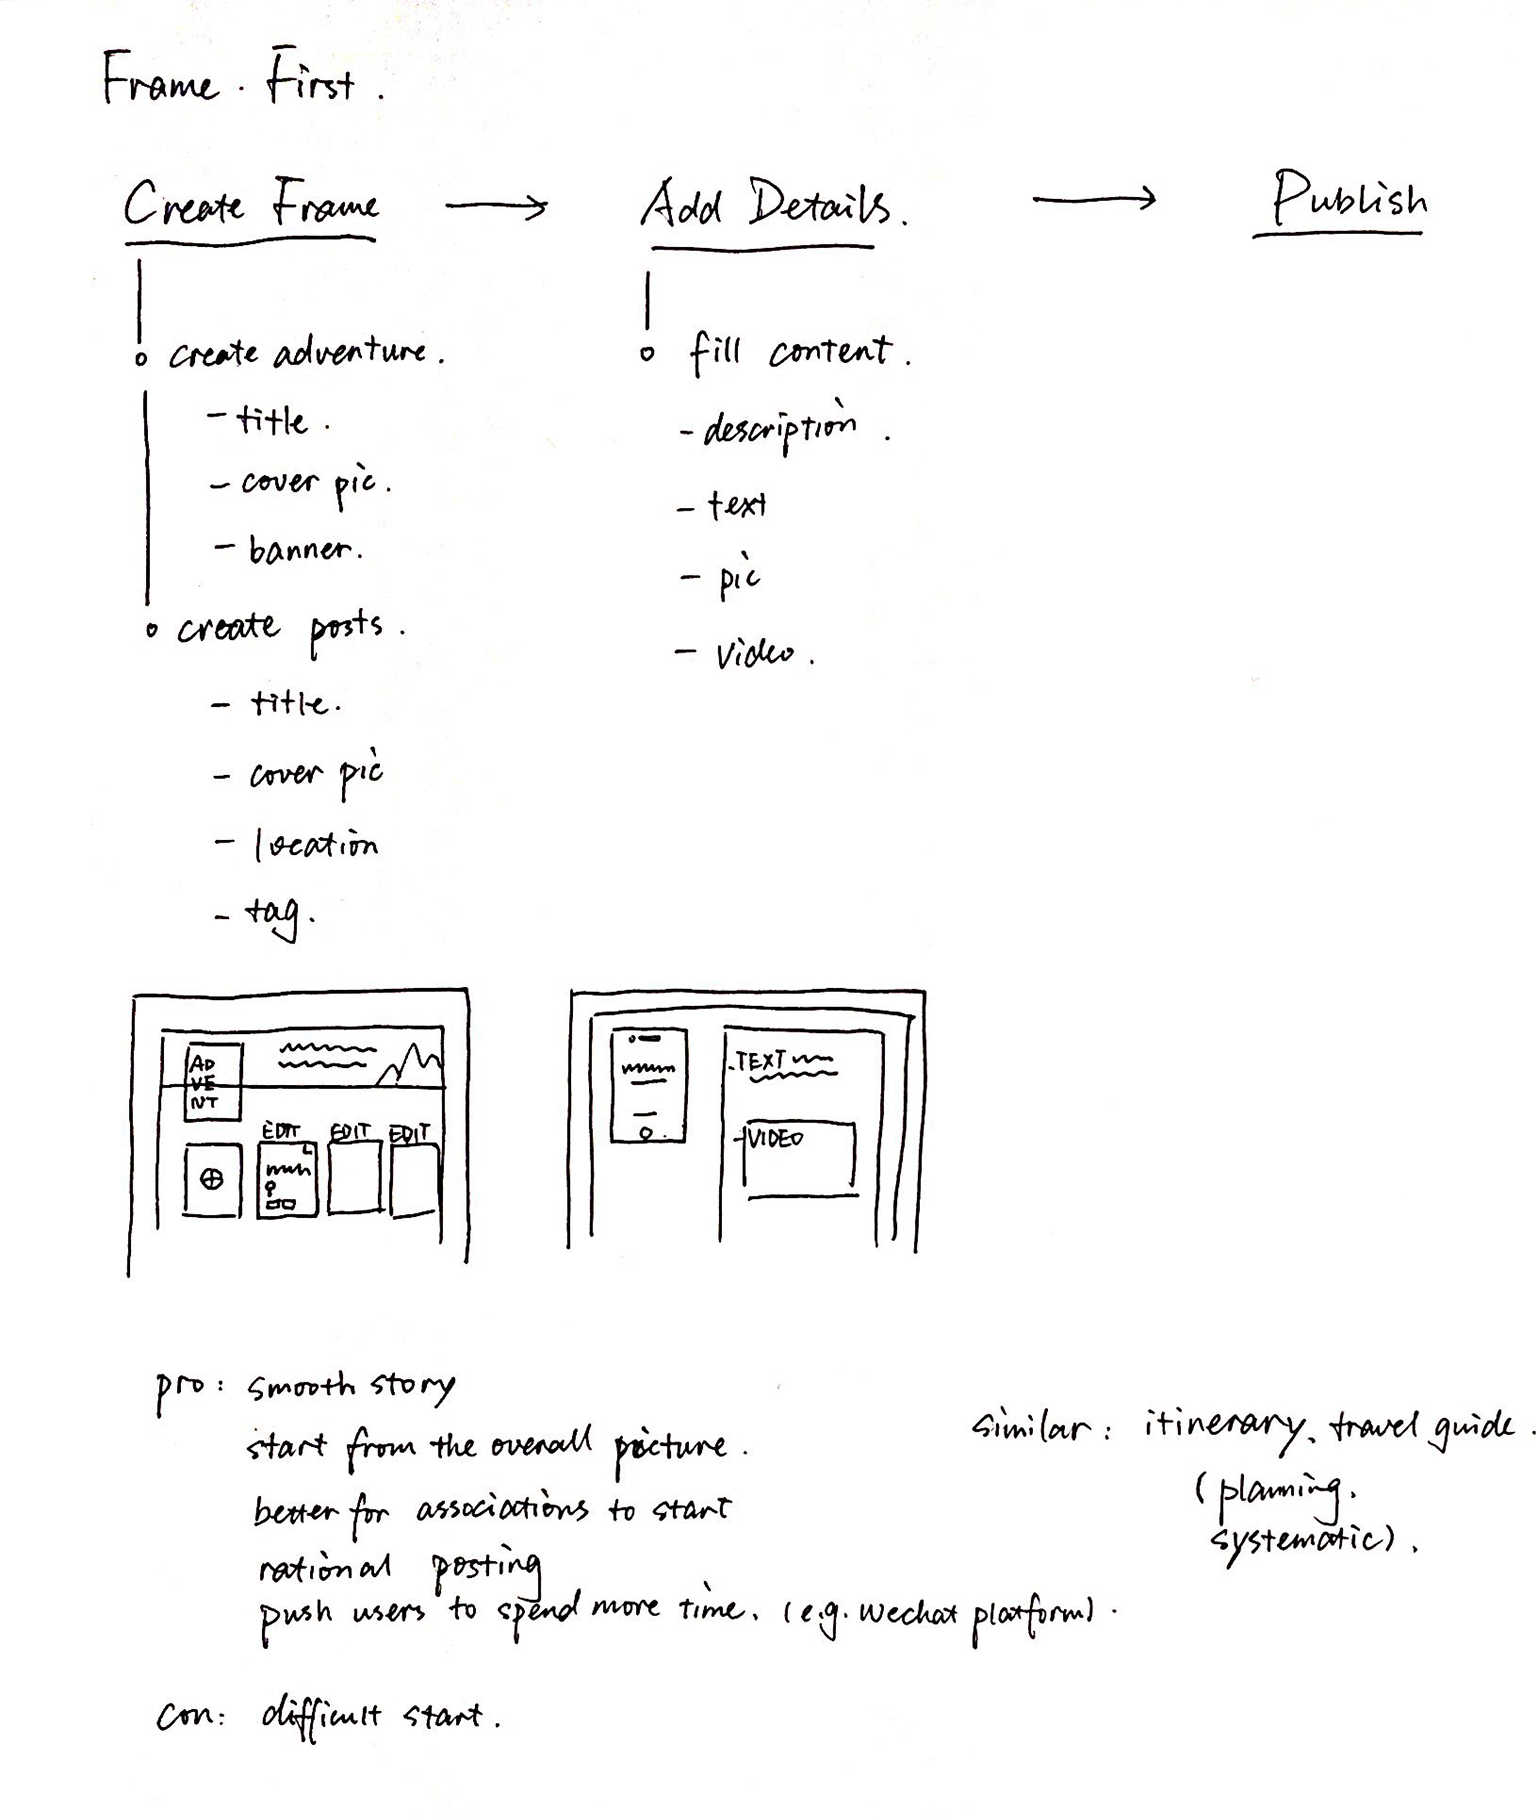 Frame. First.
Create Frame → Add Details. → Publish
create adventure.
- title.
- cover pic.
- banner.
create posts.
- title.
- cover pic
- location
- tag.
fill content.
- description.
- text
- pic
- video.
AD
VE
NT
EDIT EDIT EDIT
TEXT
VIDEO
pro: smooth story
start from the overall picture.
better for associations to start
rational posting
push users to spend more time. (e.g. wechat platform).
similar: itinerary, travel guide.
(planning,
systematic).
con: difficult start.